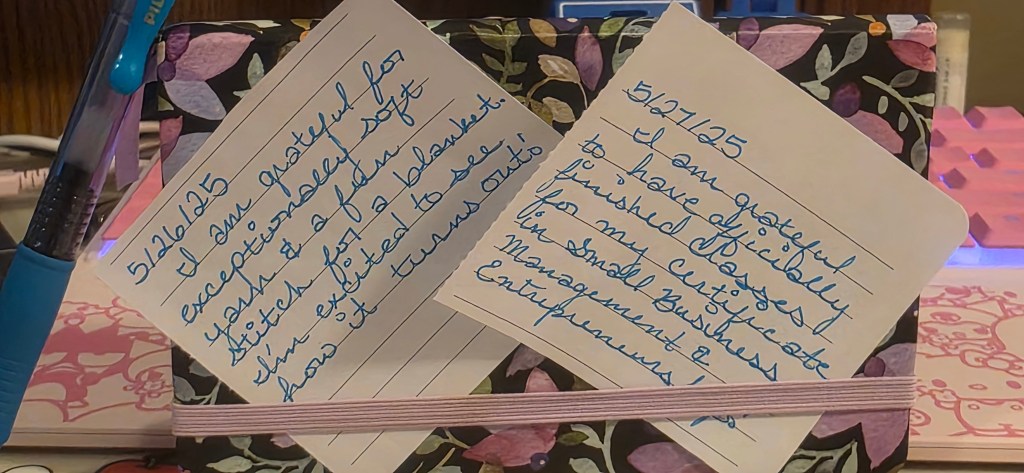 PIL
5/26/25
I am grateful for
exceptionally soft
yarn & a fun
stitch for a blanket.
I'm excited to see
how it turns out!
5/27/25
I am grateful
to have officially
finished classes
for my certificate
in Small Business
Management &